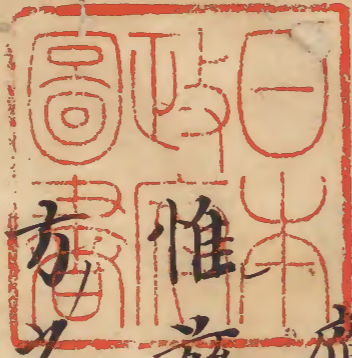 日本
政府
圖書
惟
方